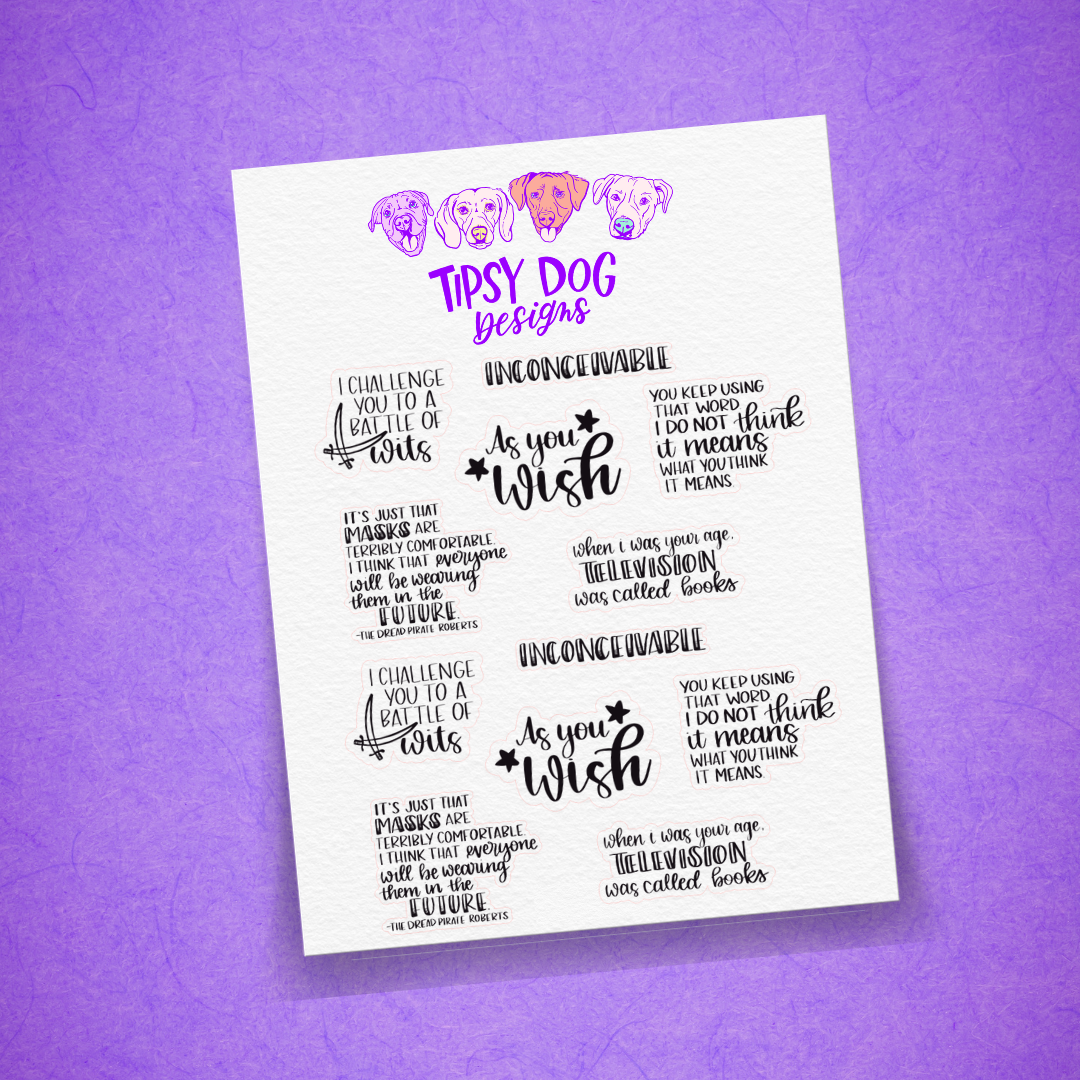 TIPSY DOG
Designs
INCONCEIVABLE
I CHALLENGE
YOU TO A
BATTLE OF
wits
As you
Wish
YOU KEEP USING
THAT WORD
I DO NOT think
it means
WHAT YOU THINK
IT MEANS.
IT'S JUST THAT
MASKS ARE
TERRIBLY COMFORTABLE.
I THINK THAT everyone
will be wearing
them in the
FUTURE.
-THE DREAD PIRATE ROBERTS
when i was your age,
TELEVISION
was called books
INCONCEIVABLE
I CHALLENGE
YOU TO A
BATTLE OF
wits
As you
Wish
YOU KEEP USING
THAT WORD
I DO NOT think
it means
WHAT YOU THINK
IT MEANS.
IT'S JUST THAT
MASKS ARE
TERRIBLY COMFORTABLE.
I THINK THAT everyone
will be wearing
them in the
FUTURE.
-THE DREAD PIRATE ROBERTS
when i was your age,
TELEVISION
was called books